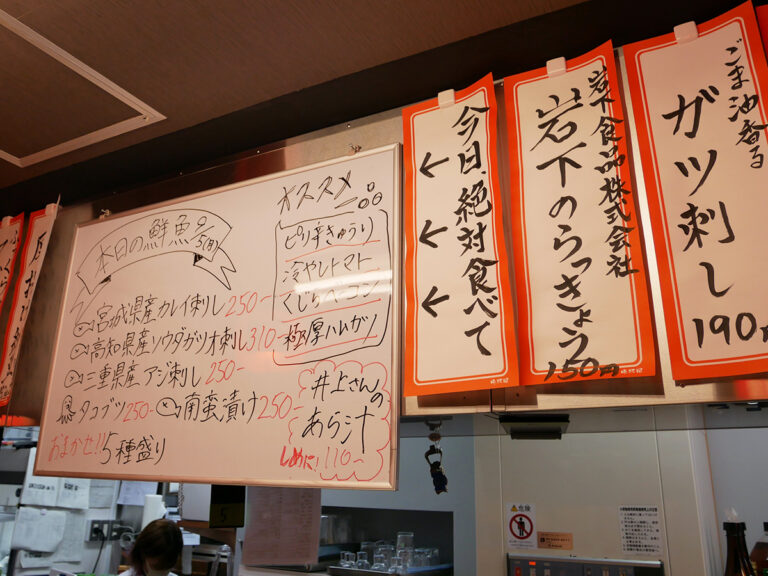 本日の鮮魚
宮城県産カレイ刺し250-
高知県産ソウダガツオ刺し310-
三重県産アジ刺し250-
タコブツ250-
南蛮漬け250-
おまかせ!!5種盛り
オススメ
ピリ辛きゅうり
冷やしトマト
くじらベーコン
極厚ハムカツ
井上さんの
あら汁
しめに!110-
今日、絶対食べて
←
←
←
岩下食品株式会社
岩下のらっきょう
150円
ごま油香る
ガツ刺し
190円
危険